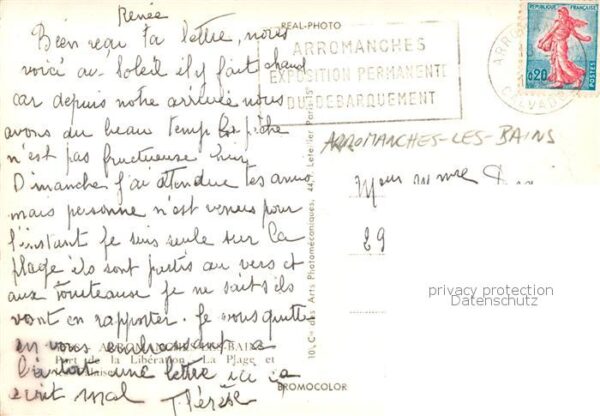 Renée
Bien reçu ta lettre, nous
voici au soleil il y fait chaud
car depuis notre arrivée nous
avons du beau temp la pêche
n'est pas fructueuse hier
Dimanche j'ai attendue tes amis
mais personne n'est venus pour
l'instant je suis seule sur la
plage ils sont partis au vers et
aux Tourteause je ne sait s'ils
vont en rapporter. Je vous quitte
en vous
une lettre ici ça
écrit mal Thérèse
ARROMANCHES-LES-BAINS
Port de la Libération - La Plage et
REAL-PHOTO
ARROMANCHES
EXPOSITION PERMANENTE
DU DEBARQUEMENT
ARRO
CALVADOS
0,20
POSTES
ARROMANCHES-LES-BAINS
Mr
29
privacy protection
Datenschutz
Cie des Arts Photomécaniques, 44, r. Letellier Paris-15e
BROMOCOLOR